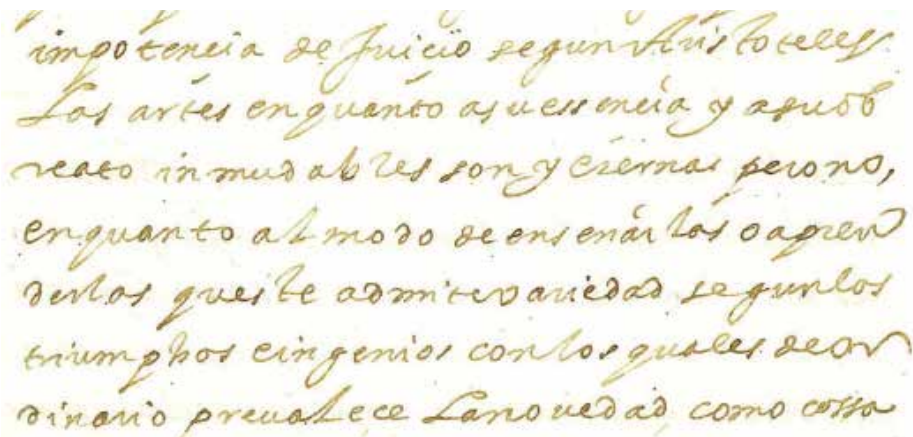 impotencia de Juicio segun Aristoteles.
Las artes en quanto a su essencia y a su ob
reato inmudables son y eternas pero no,
en quanto al modo de enseñarlas o apren
derlas que este admite variedad segun los
triumphos e ingenios con los quales de or
dinario prevalece La novedad, como cossa